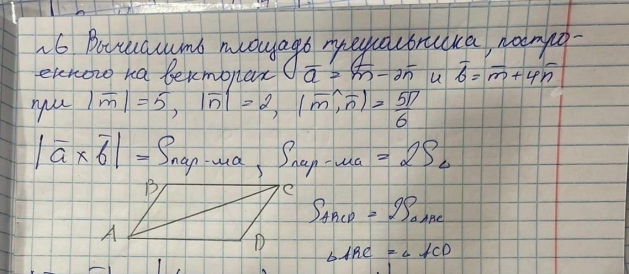 №6 Вычислить площадь треугольника, постро-
енного на векторах a̅ = m̅ - 2n̅ и b̅ = m̅ + 4n̅
при |m̅| = 5, |n̅| = 2, (m̅^,n̅) = 5π/6
|a̅ × b̅| = Sпар-ма, Sпар-ма = 2S△
B C
SABCD = 2S△ABC
A D
△ABC = △ACD